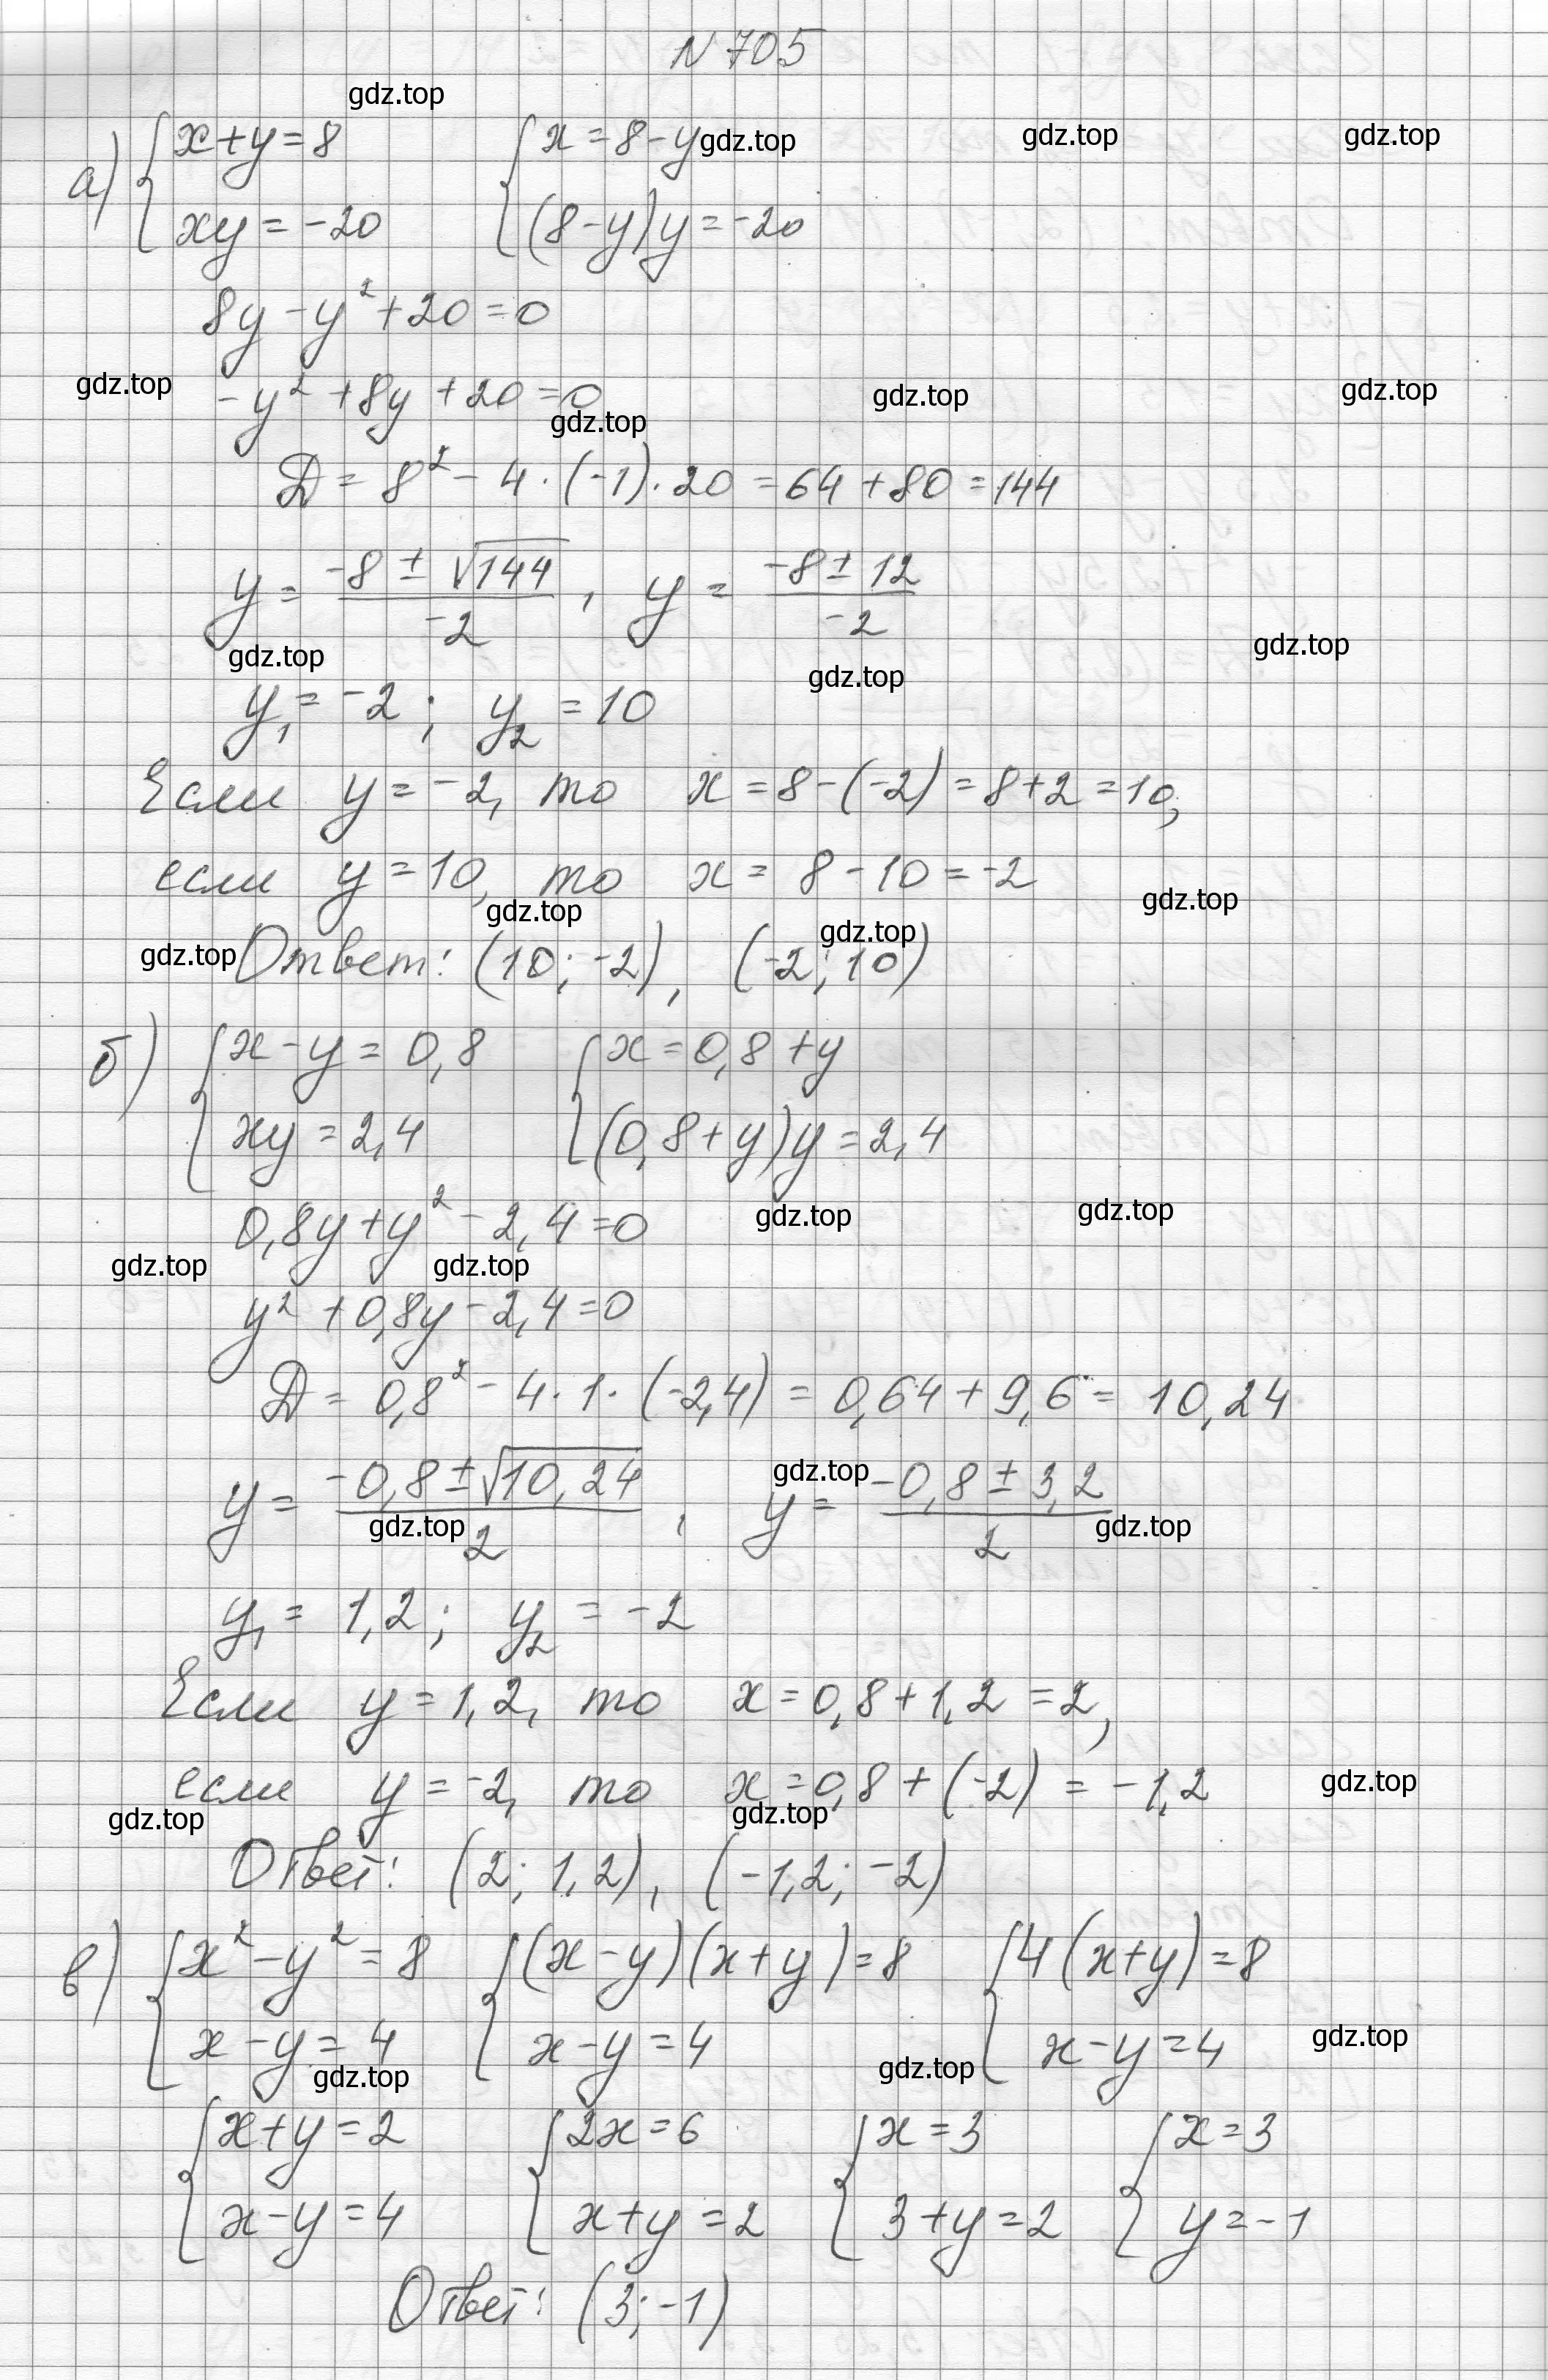 N 705
gdz.top
а) { x+y=8 { x=8-y gdz.top gdz.top gdz.top
xy=-20 (8-y)y=-20
8y-y²+20=0
gdz.top -y²+8y+20=0 gdz.top gdz.top
gdz.top
Д=8²-4·(-1)·20=64+80=144
y=(-8±√144)/(-2), y=(-8±12)/(-2)
gdz.top gdz.top gdz.top
y₁=-2; y₂=10
Если y=-2, то x=8-(-2)=8+2=10,
если y=10, то x=8-10=-2
gdz.top gdz.top
gdz.top Ответ: (10;-2), (-2;10) gdz.top
б) { x-y=0,8 { x=0,8+y
xy=2,4 (0,8+y)y=2,4
0,8y+y²-2,4=0 gdz.top gdz.top
gdz.top gdz.top
y²+0,8y-2,4=0
Д=0,8²-4·1·(-2,4)=0,64+9,6=10,24
y=(-0,8±√10,24)/2, y=(-0,8±3,2)/2
gdz.top gdz.top gdz.top
y₁=1,2; y₂=-2
Если y=1,2, то x=0,8+1,2=2,
если y=-2, то x=0,8+(-2)=-1,2 gdz.top
gdz.top gdz.top
Ответ: (2;1,2), (-1,2;-2)
в) { x²-y²=8 { (x-y)(x+y)=8 { 4(x+y)=8
x-y=4 x-y=4 x-y=4 gdz.top
gdz.top gdz.top
{ x+y=2 { 2x=6 { x=3 { x=3
x-y=4 x+y=2 3+y=2 y=-1
Ответ: (3;-1)